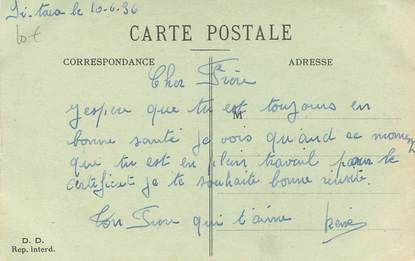 le 10.6.36
lot
CARTE POSTALE
CORRESPONDANCE
ADRESSE
Cher Frère
M
j'espère que tu est toujours en
bonne santé je vois qu'and ce momen
que tu est en plein travail pour le
certificat je te souhaite bonne réusite.
Ton Frère qui t'aime
D. D.
Rep. Interd.